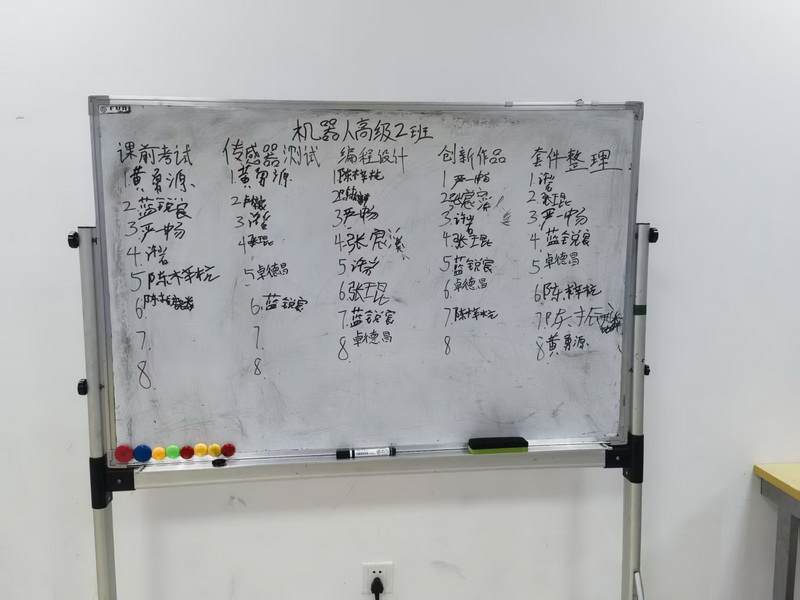 机器人高级2班
课前考试
1.黄勇源
2.蓝锐宸
3.严一畅
4.许岩
5.陈梓杭
6.
7.
8.
传感器测试
1.黄勇源
2.
3.许岩
4.张琨
5.卓德昌
6.蓝锐宸
7.
8.
编程设计
1.陈梓杭
2.
3.严畅
4.张宸溪
5.许岩
6.张琨
7.蓝锐宸
8.卓德昌
创新作品
1.严一畅
2.张宸溪
3.许岩
4.张琨
5.蓝锐宸
6.卓德昌
7.陈梓杭
8
套件整理
1.许岩
2.张琨
3.严一畅
4.蓝锐宸
5.卓德昌
6.陈梓杭
7.陈
8.黄勇源